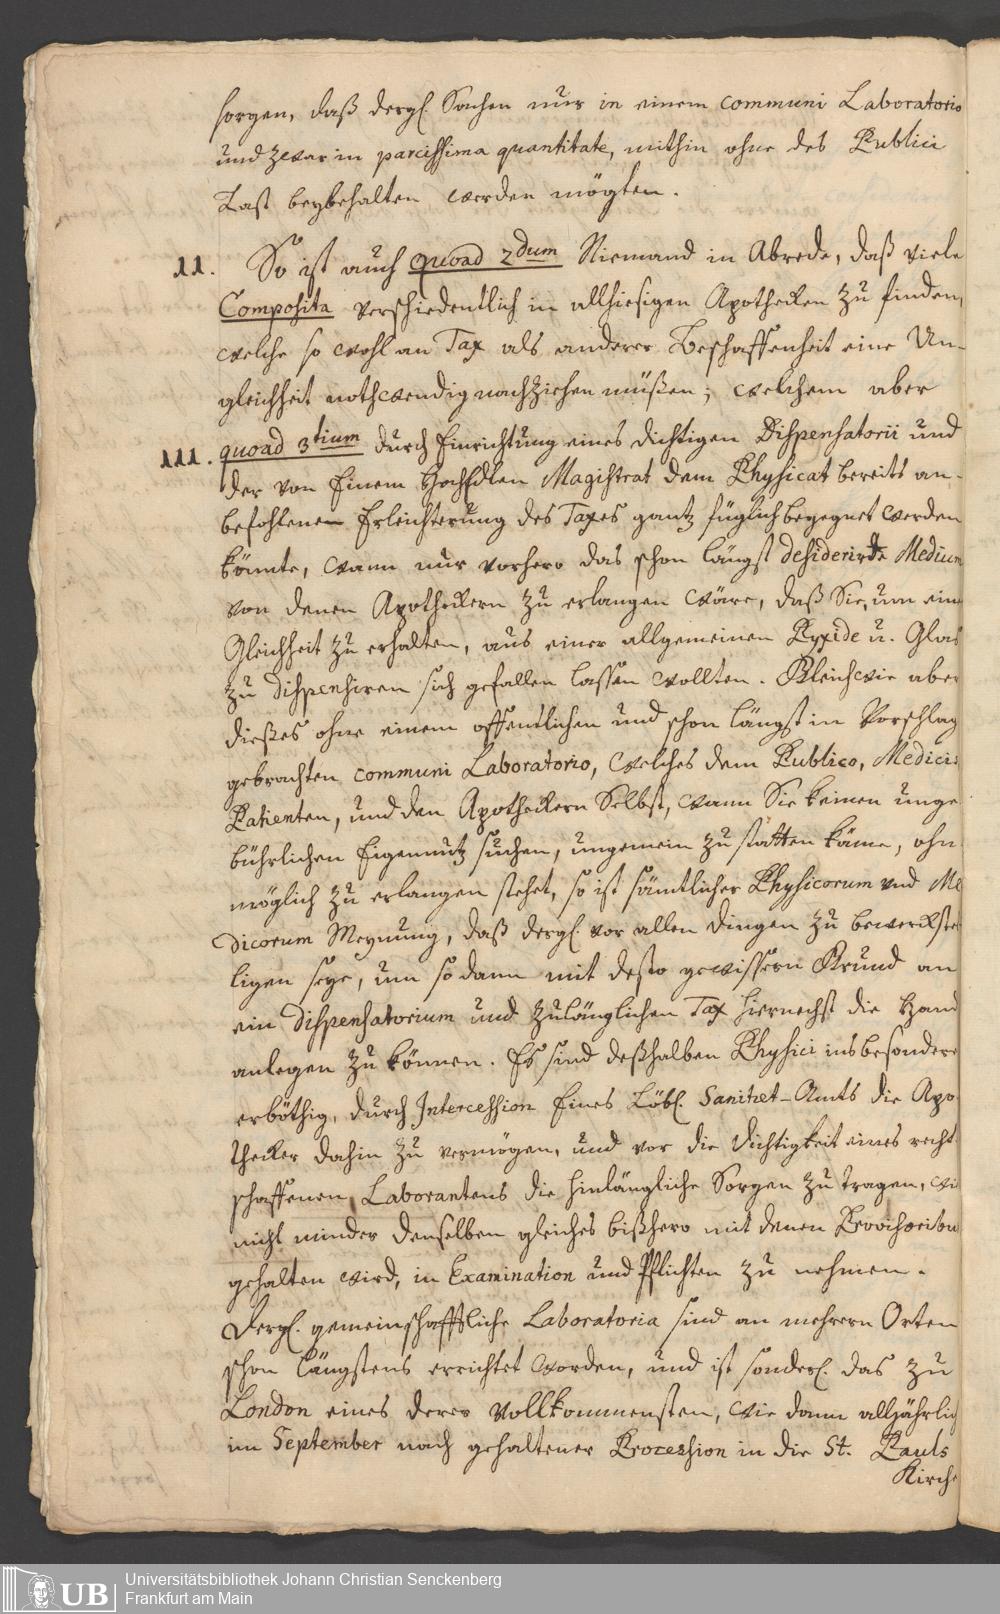 sorgen, daß dergl. Sachen nur in einem communi Laboratorio
und zwar in parcissima quantitate, mithin ohne des Publici
Last beybehalten werden mögten.
II. So ist auch quoad 2dum Niemand in Abrede, daß viele
Composita verschiedentlich in allhiesigen Apothecken zu finden,
welche so wohl an Tax als anderer Beschaffenheit eine Un-
gleichheit nothwendig nachziehen müßen; welchem aber
III. quoad 3tium durch Einrichtung eines dichtigen Dispensatorii und
der von Einem HochEdlen Magistrat dem Physicat bereits an-
befohlenen Erleichterung des Taxes gantz füglich begegnet werden
könnte, wann nur vorhero das schon längst desiderirte Medium
von denen Apotheckern zu erlangen wäre, daß Sie, um eine
Gleichheit zu erhalten, aus einer allgemeinen Pyxide u. Glas
zu dispensiren sich gefallen lassen wollten. Gleichwie aber
dießes ohne einem offentlichen und schon längst in Vorschlag
gebrachten communi Laboratorio, welches dem Publico, Medicis
Patienten, und den Apotheckern Selbst, wann Sie keinen unge
bührlichen Eigennutz suchen, ungemein zu statten käme, ohn
möglich zu erlangen stehet, so ist sämtlicher Physicorum und Me
dicorum Meynung, daß dergl. vor allen Dingen zu bewerckstel
ligen seye, um so dann mit desto gewissern Grund an
ein Dispensatorium und zulänglichen Tax hiernechst die Hand
anlegen zu können. Es sind deßhalben Physici insbesondere
erböthig, durch Intercession Eines Löbl. Sanitæt-Amts die Apo
thecker dahin zu vermögen, und vor die Dichtigkeit eines recht
schaffenen Laborantens die hinlängliche Sorgen zu tragen, wie
nicht minder denselben gleiches bißhero mit denen Provisoribus
gehalten wird, in Examination und Pflichten zu nehmen.
Dergl. gemeinschafftliche Laboratoria sind an mehrern Orten
schon längstens errichtet worden, und ist sonderl. das zu
London eines derer Vollkommensten, wie dann alljährlich
im September nach gehaltener Procession in die St. Pauls
Kirche
UB Universitätsbibliothek Johann Christian Senckenberg
Frankfurt am Main